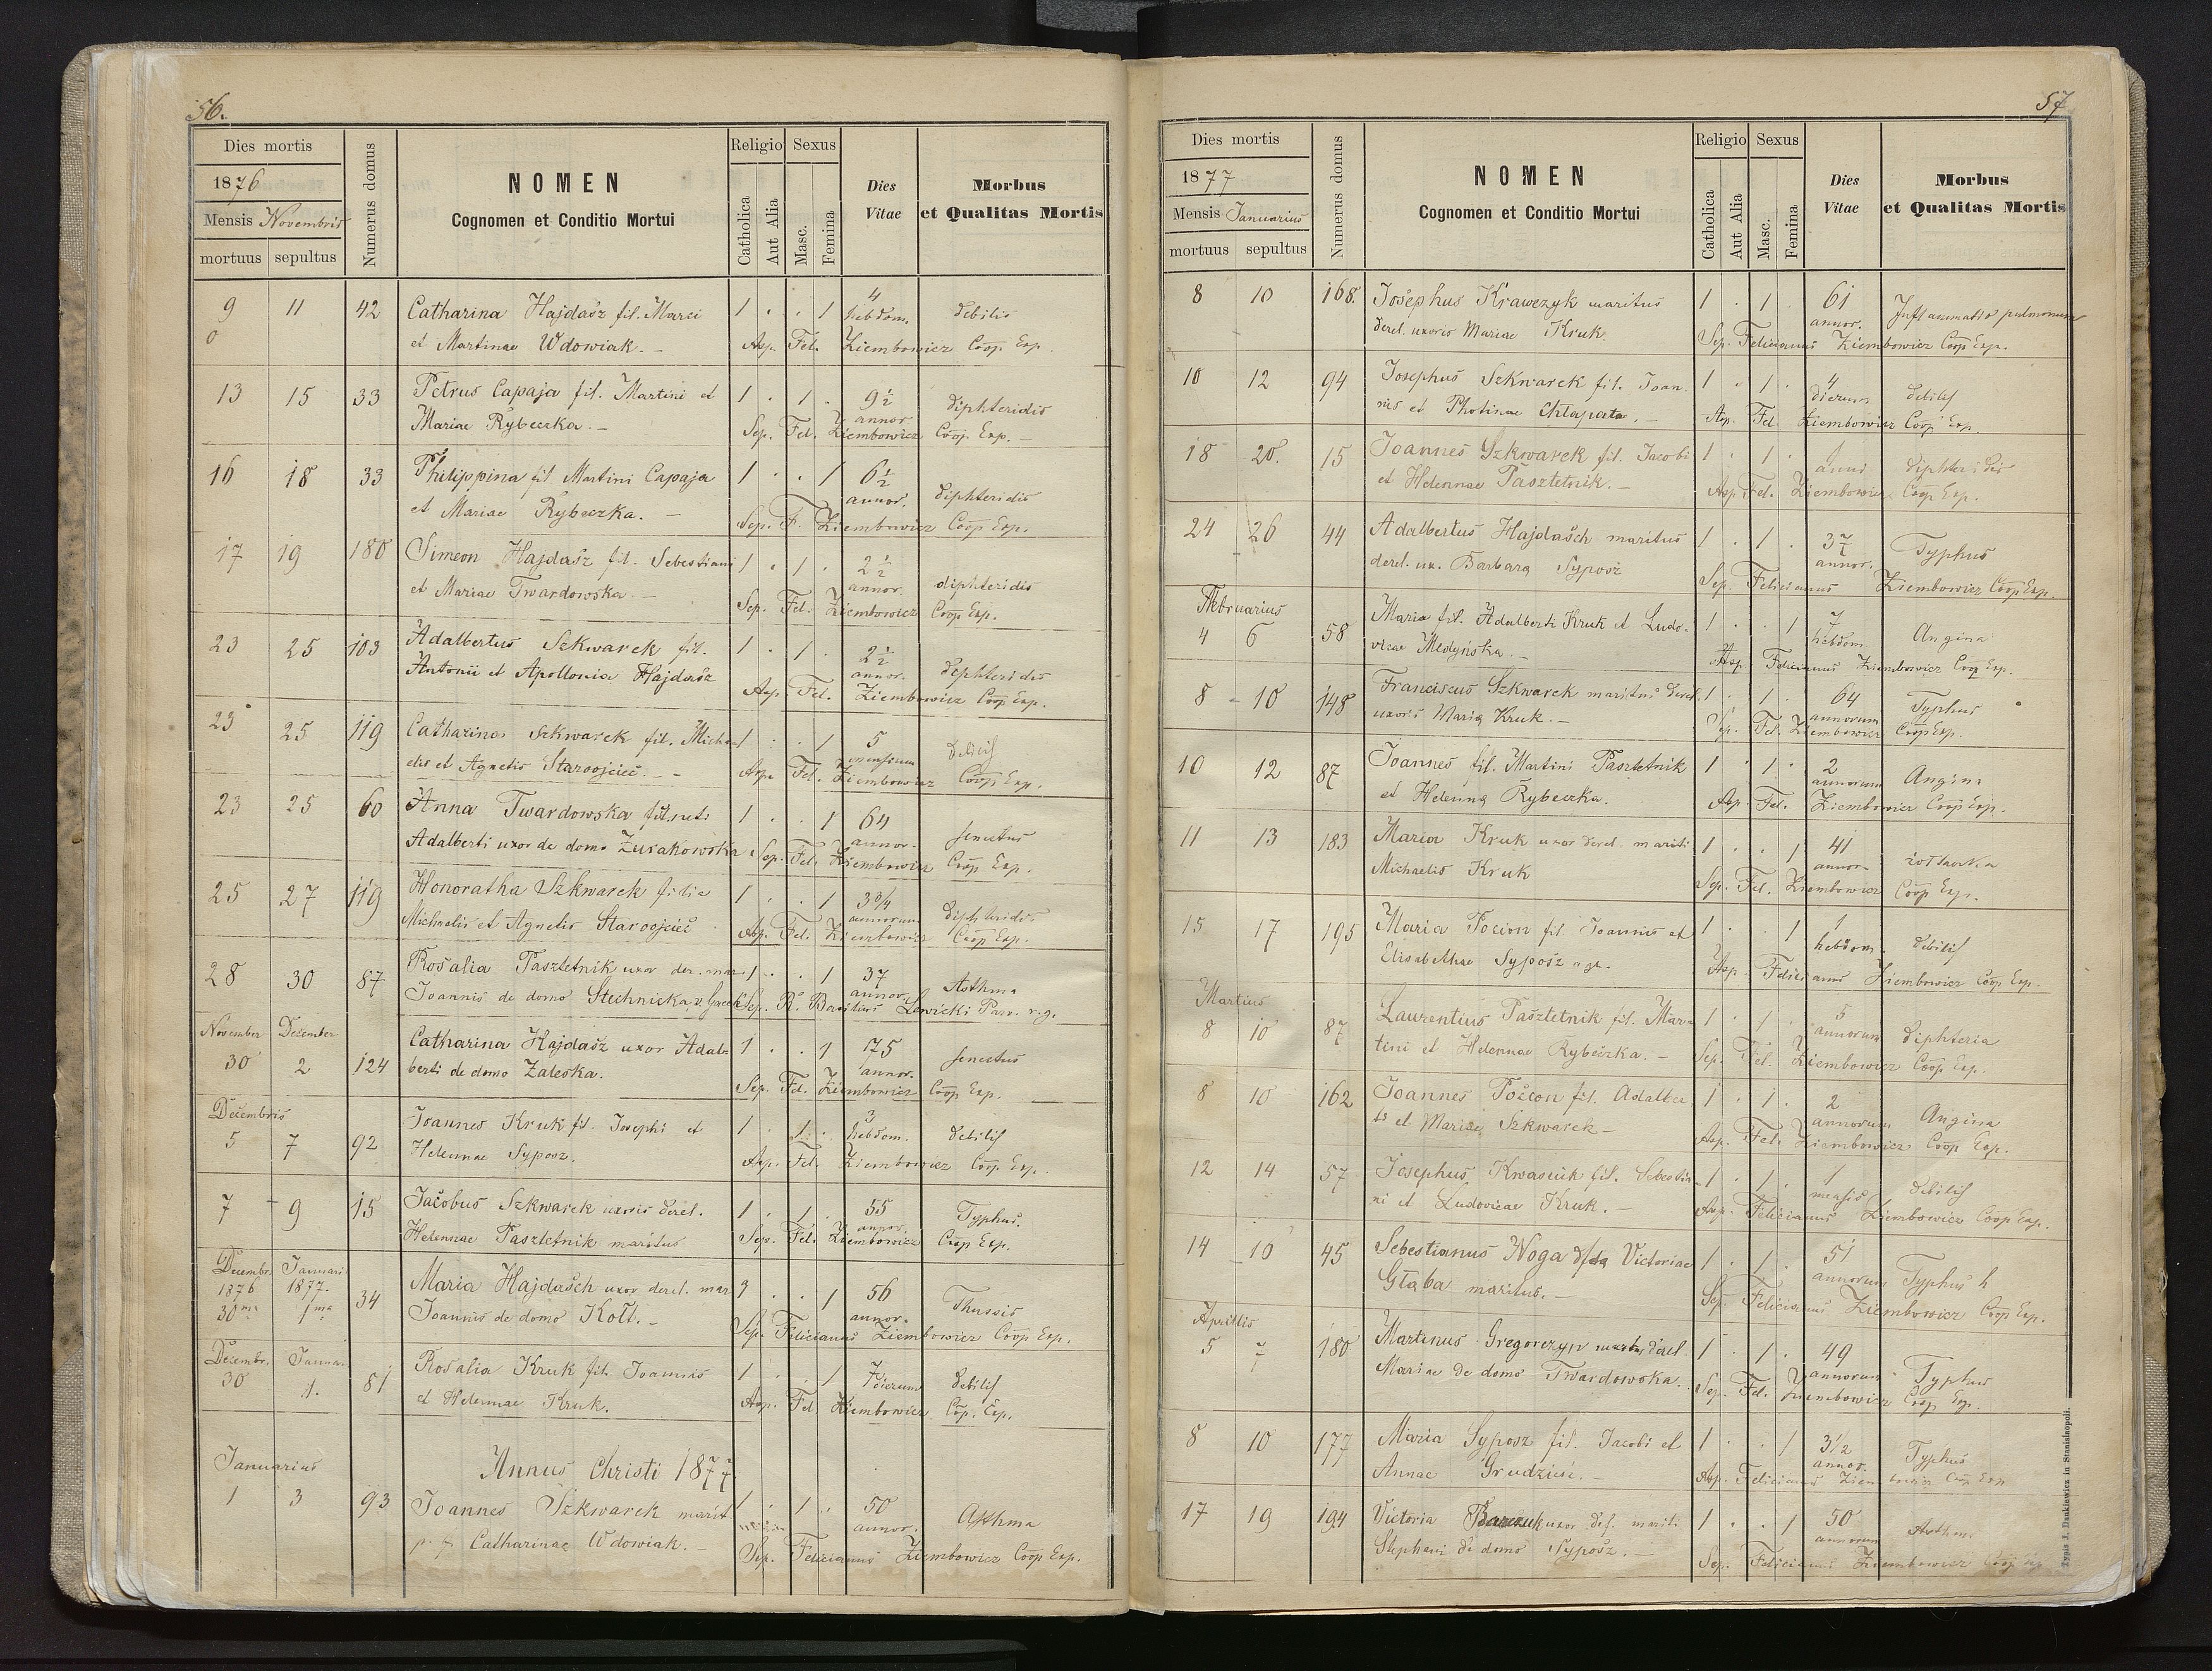 56.
Dies mortis
1876
Mensis Novembris
mortuus sepultus
Numerus domus
NOMEN
Cognomen et Conditio Mortui
Religio
Catholica
Aut Alia
Sexus
Masc.
Femina
Dies
Vitae
Morbus
et Qualitas Mortis
9 11 42 Catharina Hajdasz fil. Marci 1 . . 1 4 hebdom. debilis
et Martinae Wdowiak. – Asp. Fel. Ziembowicz Coop. Exp.
13 15 33 Petrus Capaja fil. Martini et 1 . 1 . 9½ annor. diphteridis
Mariae Rybeczka. – Sep. Fel. Ziembowicz Coop. Exp. –
16 18 33 Philippina fil Martini Capaja 1 . . 1 6½ annor. diphteridis
et Mariae Rybeczka. – Sep. F. Ziembowicz Coop. Exp.
17 19 180 Simeon Hajdasz fil. Sebestiani 1 . 1 . 2½ annor. diphteridis
et Mariae Twardowska – Sep. Fel. Ziembowicz Coop Exp.
23 25 103 Adalbertus Szkwarek fil. 1 . 1 . 2½ annor. diphteridis
Antonii et Apollonia Hajdasz Asp. Fel. Ziembowicz Coop Exp.
23 25 119 Catharina Szkwarek fil. Micha- 1 . . 1 5 mensium debilis
elis et Agnetis Staroojciec. – Asp. Fel. Ziembowicz Coop Exp.
23 25 60 Anna Twardowska 1 . . 1 64 annor. senectus
Adalberti uxor de domo Zurakowska Sep. Fel. Ziembowicz Coop Exp.
25 27 119 Honoratha Szkwarek filia 1 . . 1 3¾ annorum diphteridis
Michaelis et Agnetis Staroojciec Asp. Fel. Ziembowicz Coop Exp.
28 30 87 Rosalia Pasztetnik uxor der. mar. 1 . . 1 37 annor. Asthma
Joannis de domo Stechnicka Sep. R. Basilius Lewicki Par. r. g.
November December
30 2 124 Catharina Hajdasz uxor Adal- 1 . . 1 75 annor. senectus
berti de domo Zaleska. Sep. Fel. Ziembowicz Coop Exp.
Decembris
5 7 92 Joannes Kruk fil. Josephi et 1 . 1 . 3 hebdom. debilis
Helennae Syposz. Asp. Fel. Ziembowicz Coop. Exp.
7 9 15 Jacobus Szkwarek uxoris derel. 1 . 1 . 55 annor. Typhus.
Helennae Pasztetnik maritus Sep. Fel. Ziembowicz Coop Exp.
Decembr. Januari
1876 1877.
30ma 1ma 34 Maria Hajdasch uxor derel. mar 1 . . 1 56 annor. Thussis
Joannis de domo Kott. – Sep. Felicianus Ziembowicz Coop Exp.
Decembr. Januar.
30 1. 81 Rosalia Kruk fil. Joannis 1 . . 1 7 dierum debilis
et Helennae Kruk. Asp. Fel. Ziembowicz Cop. Exp.
Januarius
Annus Christi 1877
1 3 93 Joannes Szkwarek marit. 1 . 1 . 50 annor. Asthma
Catharinae Wdowiak. – Sep. Felicianus Ziembowicz Coop Exp.
57
Dies mortis
1877
Mensis Januarius
mortuus sepultus
Numerus domus
NOMEN
Cognomen et Conditio Mortui
Religio
Catholica
Aut Alia
Sexus
Masc.
Femina
Dies
Vitae
Morbus
et Qualitas Mortis
8 10 168. Josephus Krawczyk maritus 1 . 1 . 61 annor. Inflammatio pulmonum
derel. uxoris Mariae Kruk. Sep. Felicianus Ziembowicz Coop Exp.
10 12 94 Josephus Szkwarek fil. Joan- 1 . 1 . 4 dierum debilis
nis et Photinae Chlapata. – Asp. Fel. Ziembowicz Coop Exp.
18 20. 15 Joannes Szkwarek fil. Jacobi 1 . 1 . 1 anni diphteridis
et Helennae Pasztetnik. – Asp. Fel. Ziembowicz Coop Exp.
24 26 44 Adalbertus Hajdasch maritus 1 . 1 . 37 annor. Typhus
derel. ux. Barbara Syposz Sep. Felicianus Ziembowicz Coop Exp.
Februarius
4 6 58 Maria fil. Adalberti Kruk et Ludo- 1 . . 1 7 hebdom. Angina
vicae Medyńska. – Asp. Felicianus Ziembowicz Coop Exp.
8 – 10 148 Franciscus Szkwarek maritus derel. 1 . 1 . 64 annorum Typhus
uxoris Maria Kruk. – Sep. Fel. Ziembowicz Coop Exp.
10 12 87 Joannes fil. Martini Pasztetnik 1 . 1 . 2 annorum Angina
et Helenna Rybeczka. Asp. Fel. Ziembowicz Coop Exp.
11 13 183 Maria Kruk uxor derel. mariti 1 . . 1 41 annor.
Michaelis Kruk Sep. Fel. Ziembowicz Coop Exp.
15 17 195 Maria Focion fil. Joannis et 1 . . 1 1 hebdom. debilis
Elisabethae Syposz Asp. Felicianus Ziembowicz Coop Exp.
Martius
8 10 87 Laurentius Pasztetnik fil. Mar- 1 . 1 . 5 annorum diphteria
tini et Helennae Rybeczka. – Sep. Fel. Ziembowicz Coop Exp.
8 10 162 Joannes Focion fil. Adalber- 1 . 1 . 2 annorum Angina
ti et Mariae Szkwarek – Asp. Fel. Ziembowicz Coop Exp.
12 14 57 Josephus Kwasnik fil. Sebestia- 1 . 1 . 1 mensis debilis
ni et Ludovicae Kruk. – Asp. Felicianus Ziembowicz Coop Exp.
14 16 45 Sebestianus Noga Victoriae 1 . 1 . 51 annorum Typhus
Głąba maritus. – Sep. Felicianus Ziembowicz Coop Exp.
Aprillis
5 7 180 Martinus Gregorczyn derel 1 . 1 . 49 annorum Typhus
Mariae de domo Twardowska. Sep. Fel. Ziembowicz Coop Exp.
8 10 177 Maria Syposz fil. Jacobi et 1 . . 1 3½ annor. Typhus
Annae Grudzież. – Asp. Felicianus Ziembowicz Coop Exp
17 19 194 Victoria uxor def. mariti 1 . . 1 50 annorum Asthm.
Stephani de domo Syposz. – Sep. Felicianus Ziembowicz Coop Exp
Typis J. Dankiewicz in Stanislaopoli.